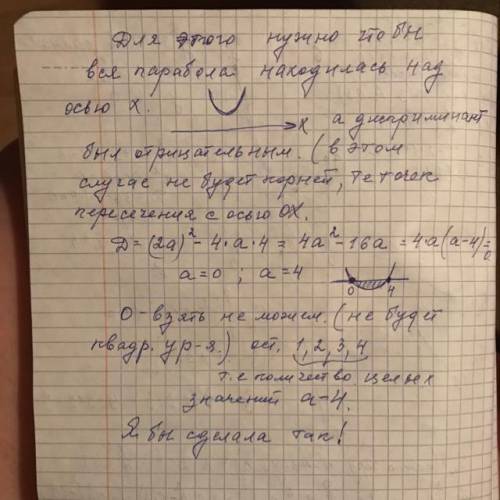 Для этого нужно что бы
вся парабола находилась над
осью х.
х а дискриминант
был отрицательным. (в этом
случае не будет корней, те точек
пересечения с осью ОХ.
D = (2a)² - 4·a·4 = 4a² - 16a = 4·a(a-4) = 0
a=0 ; a=4
0 4
0 - взять не можем. (не будет
квадр. ур-я.) ост. 1, 2, 3, 4
т.е количество целых
значений a-4.
Я бы сделала так!